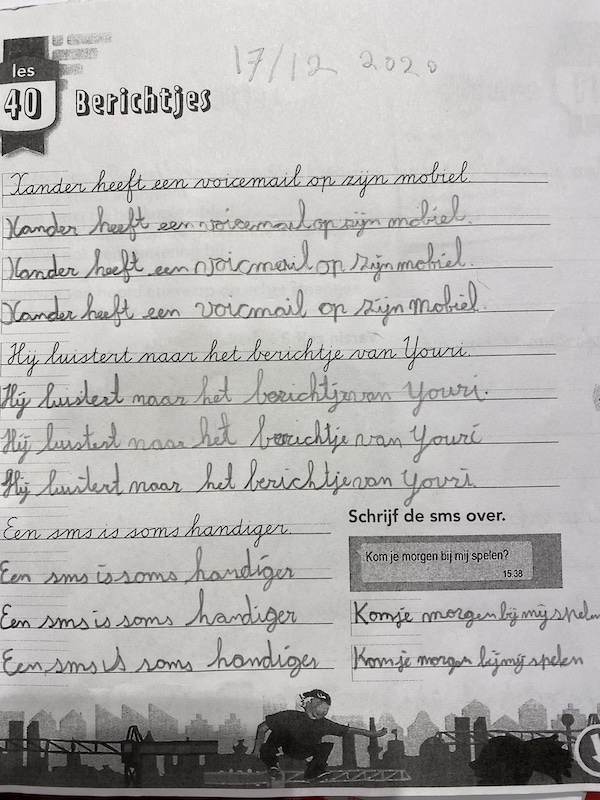 17/12 2020
les
40 Berichtjes
Xander heeft een voicemail op zijn mobiel.
Xander heeft een voicemail op zijn mobiel.
Xander heeft een voicmail op zijn mobiel.
Xander heeft een voicmail op zijn mobiel.
Hij luistert naar het berichtje van Youri.
Hij luistert naar het berichtje van Youri.
Hij luistert naar het berichtje van Youri
Hij luistert naar het berichtje van Youri.
Een sms is soms handiger.
Een sms is soms handiger
Een sms is soms handiger
Een sms is soms handiger
Schrijf de sms over.
Kom je morgen bij mij spelen?
15:38
Kom je morgen bij mij spelen
Kom je morgen bij mij spelen